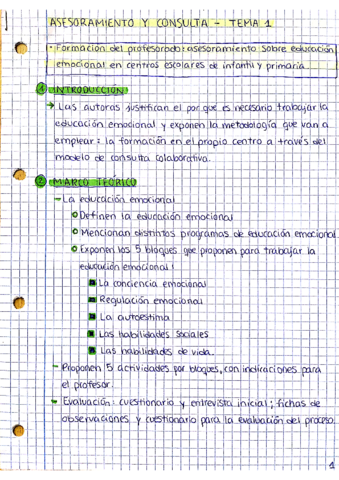 ASESORAMIENTO Y CONSULTA - TEMA 1
· Formación del profesorado: asesoramiento sobre educación
emocional en centros escolares de infantil y primaria
1 INTRODUCCIÓN
→ Las autoras justifican el por qué es necesario trabajar la
educación emocional y exponen la metodología que van a
emplear: la formación en el propio centro a través del
modelo de consulta colaborativa.
2 MARCO TEÓRICO
- La educación emocional
Definen la educación emocional
Mencionan distintos programas de educación emocional
Exponen los 5 bloques que proponen para trabajar la
educación emocional:
La conciencia emocional
Regulación emocional
La autoestima
Las habilidades sociales
Las habilidades de vida.
- Proponen 5 actividades por bloques, con indicaciones para
el profesor.
- Evaluación: cuestionario y entrevista inicial; fichas de
observaciones y cuestionario para la evaluación del proceso.
1